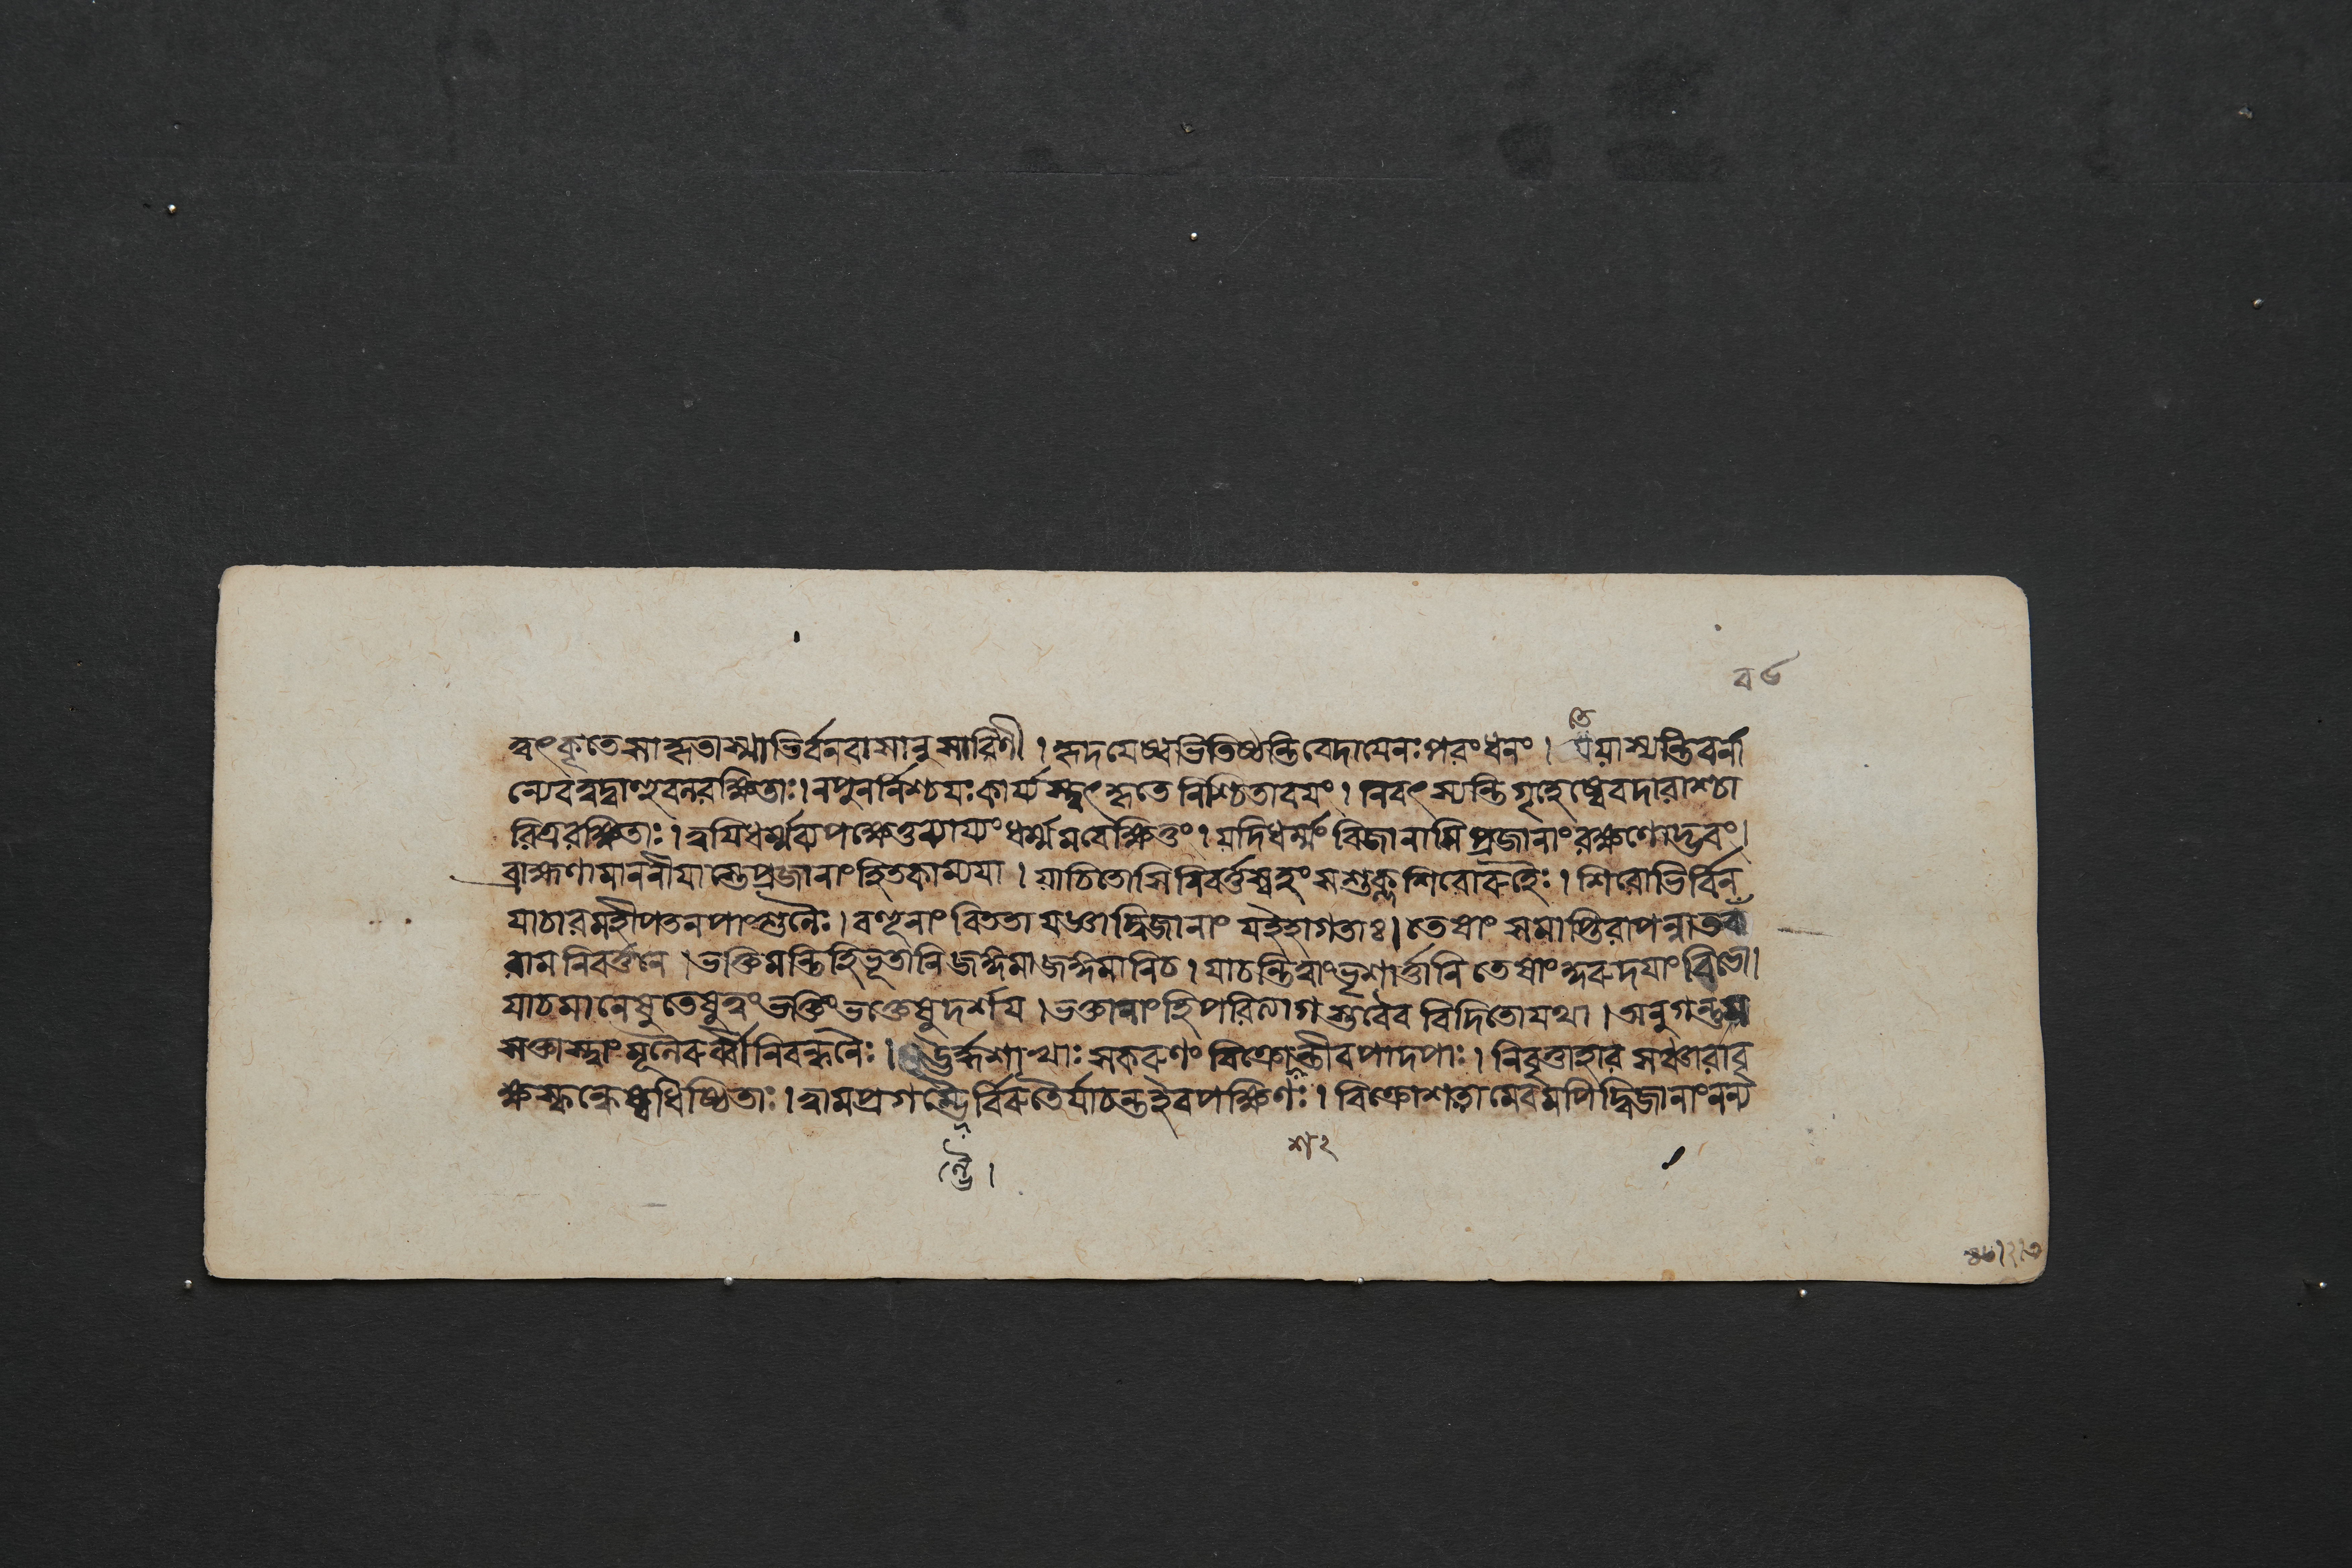 ত্বৎকৃতেসাহৃতাস্মাভির্বনবাসানুসারিণী । হৃদয়েষ্বভিতিষ্ঠন্তিবেদায়েনঃপরংধনং । তে যাস্যন্তিবনা
ন্যেবত্বদ্বাহুবলরক্ষিতাঃ। নপুনর্নিশ্চয়ঃকার্য্যস্ত্বৎকৃতেনিশ্চিতাবয়ং । নিবৎস্যন্তিগৃহেষ্বেবদারাশ্চা
রিত্ররক্ষিতাঃ। ত্বয়িধর্ম্মব্যপেক্ষেতুন্যায়্যংধর্ম্মমবেক্ষিতুং । যদিধর্ম্মংবিজানাসিপ্রজানাংরক্ষণোদ্ভবং।
ব্রাহ্মণামাননীয়াস্তেপ্রজানাংহিতকাম্যয়া । যাচিতোসিনিবর্ত্তস্বহংসশুক্লশিরোরুহৈঃ । শিরোভির্বিন
যাচারমহীপতনপাংশুলৈঃ। বহূনাংবিততাযজ্ঞাদ্বিজানাংযইহাগতাঃ। তেষাংসমাপ্তিরাপন্নাতব
রামনিবর্ত্তনে । ভক্তিমন্তিহিভূতানিজঙ্গমাজঙ্গমানিচ। যাচন্তিত্বাংভৃশার্ত্তানিতেষাং বিভো।
যাচমানেষুতেষুত্বংভক্তিংভক্তেষুদর্শয় । ভক্তানাংহিপরিত্যাগস্তবৈববিদিতোযথা । অনুগন্তুম
সক্তাস্ত্বাংমূলৈরুর্ব্বীনিবন্ধনৈঃ। সকরুণংবিক্রোশন্তীবপাদপাঃ। নিবৃত্তাহারসঞ্চারাবৃ
ক্ষস্কন্ধেষ্বধিষ্ঠিতাঃ। রামপ্রগল্ভৈর্বিরুতৈর্যাচন্তইবপক্ষিণঃ। বিক্রোশতামেবমপিদ্বিজানাংনন্য
শ২